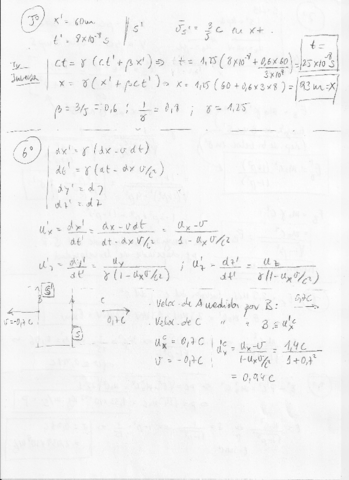 5º
x' = 60m
t' = 8x10⁻⁸s
S'
v_s' = 3/5 c em x+.
ct = γ(ct' + βx') ⇒ t = 1,25(8x10⁻⁸ + 0,6x60/3x10⁸)
t = 25x10⁻⁸s
x = γ(x' + βct') ⇒ x = 1,25(60 + 0,6x3x8)
93m = x
β = 3/5 = 0,6 ; 1/γ = 0,8 ; γ = 1.25
6º
dx' = γ(dx - v dt)
dt' = γ(dt - dx v/c²)
dy' = dy
dz' = dz
u'x = dx'/dt' = dx - v dt / dt - dx v/c² = ux - v / 1 - ux v/c²
u'y = dy'/dt' = uy / γ(1 - ux v/c²) ; u'z = dz'/dt' = uz / γ(1 - ux v/c²)
S'
B
v = -0,7c
S
C
0,7c
. Veloc. de A medida por B: 0,7c
. Veloc. de C " " B: u'x c
ux^c = 0,7c
v = -0,7c
u'x^c = ux - v / 1 - ux v/c² = 1,4c / 1 + 0,7²
= 0,94c